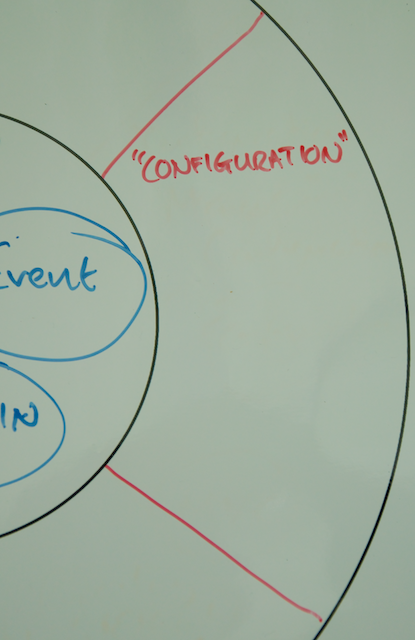 "CONFIGURATION"
Event
IN